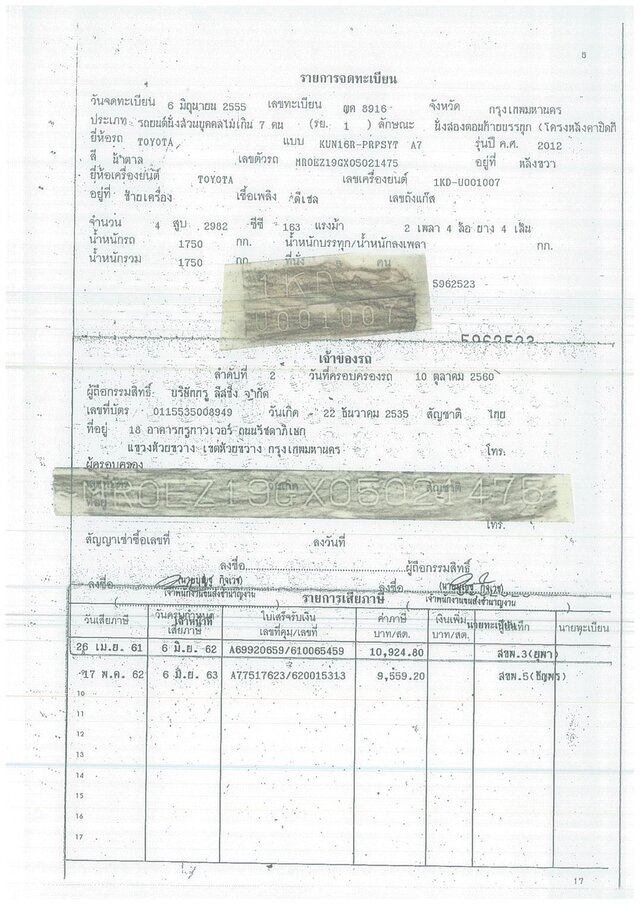 6
รายการจดทะเบียน
วันจดทะเบียน 6 มิถุนายน 2555 เลขทะเบียน 8916 จังหวัด กรุงเทพมหานคร
ประเภท รถยนต์นั่งส่วนบุคคลไม่เกิน 7 คน (รย. 1 ) ลักษณะ นั่งสองตอนท้ายบรรทุก (โครงหลังคาปิดที
ยี่ห้อรถ TOYOTA แบบ KUN16R-PRPSYT A7 รุ่นปี ค.ศ. 2012
สี น้ำตาล เลขตัวรถ MROEZ19GX05021475 อยู่ที่ หลังขวา
ยี่ห้อเครื่องยนต์ TOYOTA เลขเครื่องยนต์ 1KD-U001007
อยู่ที่ ซ้ายเครื่อง เชื้อเพลิง ดีเซล เลขถังแก๊ส
จำนวน 4 สูบ 2982 ซีซี 163 แรงม้า 2 เพลา 4 ล้อ ยาง 4 เส้น
น้ำหนักรถ 1750 กก. น้ำหนักบรรทุก/น้ำหนักลงเพลา กก.
น้ำหนักรวม 1750 กก. ที่นั่ง คน
5962523
1KD
U001007
5962523
เจ้าของรถ
ลำดับที่ 2 วันที่ครอบครองรถ 10 ตุลาคม 2560
ผู้ถือกรรมสิทธิ์ บริษัทกรุ๊ ลีสซิ่ง จำกัด
เลขที่บัตร 0115535008949 วันเกิด 22 ธันวาคม 2535 สัญชาติ ไทย
ที่อยู่ 18 อาคารกรูทาวเวอร์ ถนนรัชดาภิเษก
แขวงห้วยขวาง เขตห้วยขวาง กรุงเทพมหานคร โทร.
ผู้ครอบครอง
วันเกิด สัญชาติ
MROEZ19GX0502 475
ที่อยู่
โทร.
สัญญาเช่าซื้อเลขที่ ลงวันที่
ลงชื่อ ผู้ถือกรรมสิทธิ์
ลงชื่อ (นายบุญช กิจเวช) ลงชื่อ (นายบุญช กิจเวช)
เจ้าพนักงานขนส่งชำนาญงาน รายการเสียภาษี เจ้าพนักงานขนส่งชำนาญงาน
วันเสียภาษี วันครบกำหนดเสียภาษี ใบเสร็จรับเงิน เลขที่คุม/เลขที่ ค่าภาษี บาท/สต. เงินเพิ่ม บาท/สต. นายทะเบียน
26 เม.ย. 61 6 มิ.ย. 62 A69920659/610065459 10,924.80 สขพ.3(ยุพา)
17 พ.ค. 62 6 มิ.ย. 63 A77517623/620015313 9,559.20 สขพ.5(ธัญพร)
10
11
12
13
14
15
16
17
17